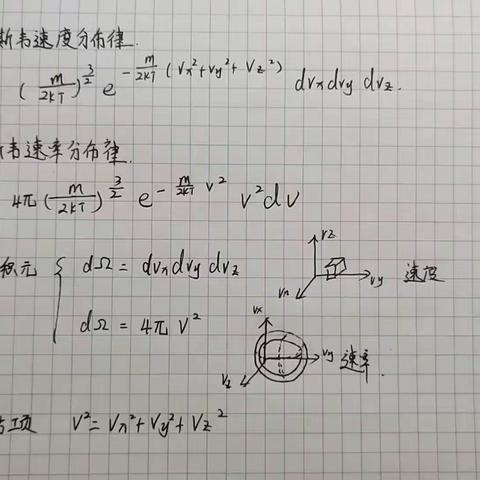 斯韦速度分布律.
(m/2kT)^(3/2) e^(-m/2kT (Vx²+Vy²+Vz²)) dvxdvy dvz.
韦速率分布律.
4π(m/2kT)^(3/2) e^(-m/2kT v²) v²dv
积元 { dΩ = dvxdvy dvz
Vz
Vx Vy 速度
dΩ = 4π V²
Vx
Vy 速率.
Vz
项 V²=Vx²+Vy²+Vz²